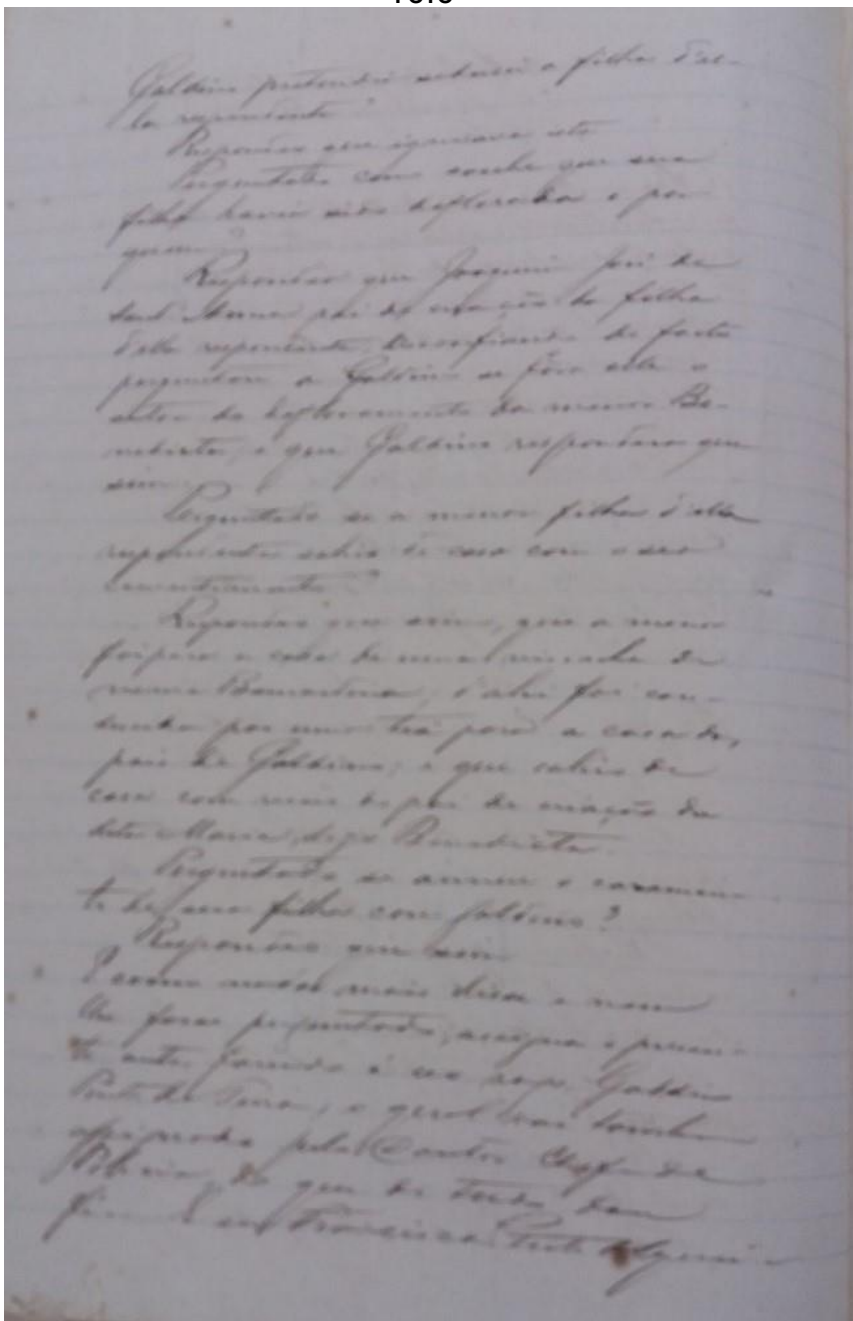 Galdino pretendia seduzir a filha d'el-
la respondente?
Respondeu que ignorava isto
Perguntada como soube que sua
filha havia sido deflorada e por
quem?
Respondeu que Joaquim José de
Sant'Anna pai de criação da filha
d'ella respondente, desconfiando do facto
perguntou a Galdino se fôra elle o
autor do defloramento da menor Be-
nedicta, e que Galdino respondera que
sim.
Perguntada se a menor filha d'ella
respondente sahio de casa com o seo
consentimento?
Respondeu que sim, que a menor
foi para a casa de uma visinha de
nome, e d'ahi foi con-
duzida por uma tia para a casa do
pai de Galdino, e que sahio de
casa com o pai de criação da
dita Maria, digo Benedicta.
Perguntada se annue o casamen-
to de sua filha com Galdino?
Respondeu que sim.
E como nada mais disse e nem
lhe foi perguntado, assigna o presen-
te auto a seo rogo Galdino
e geral vai
pelo Doutor Chefe de
Policia, do que de tudo dou
fé. E eu Francisco